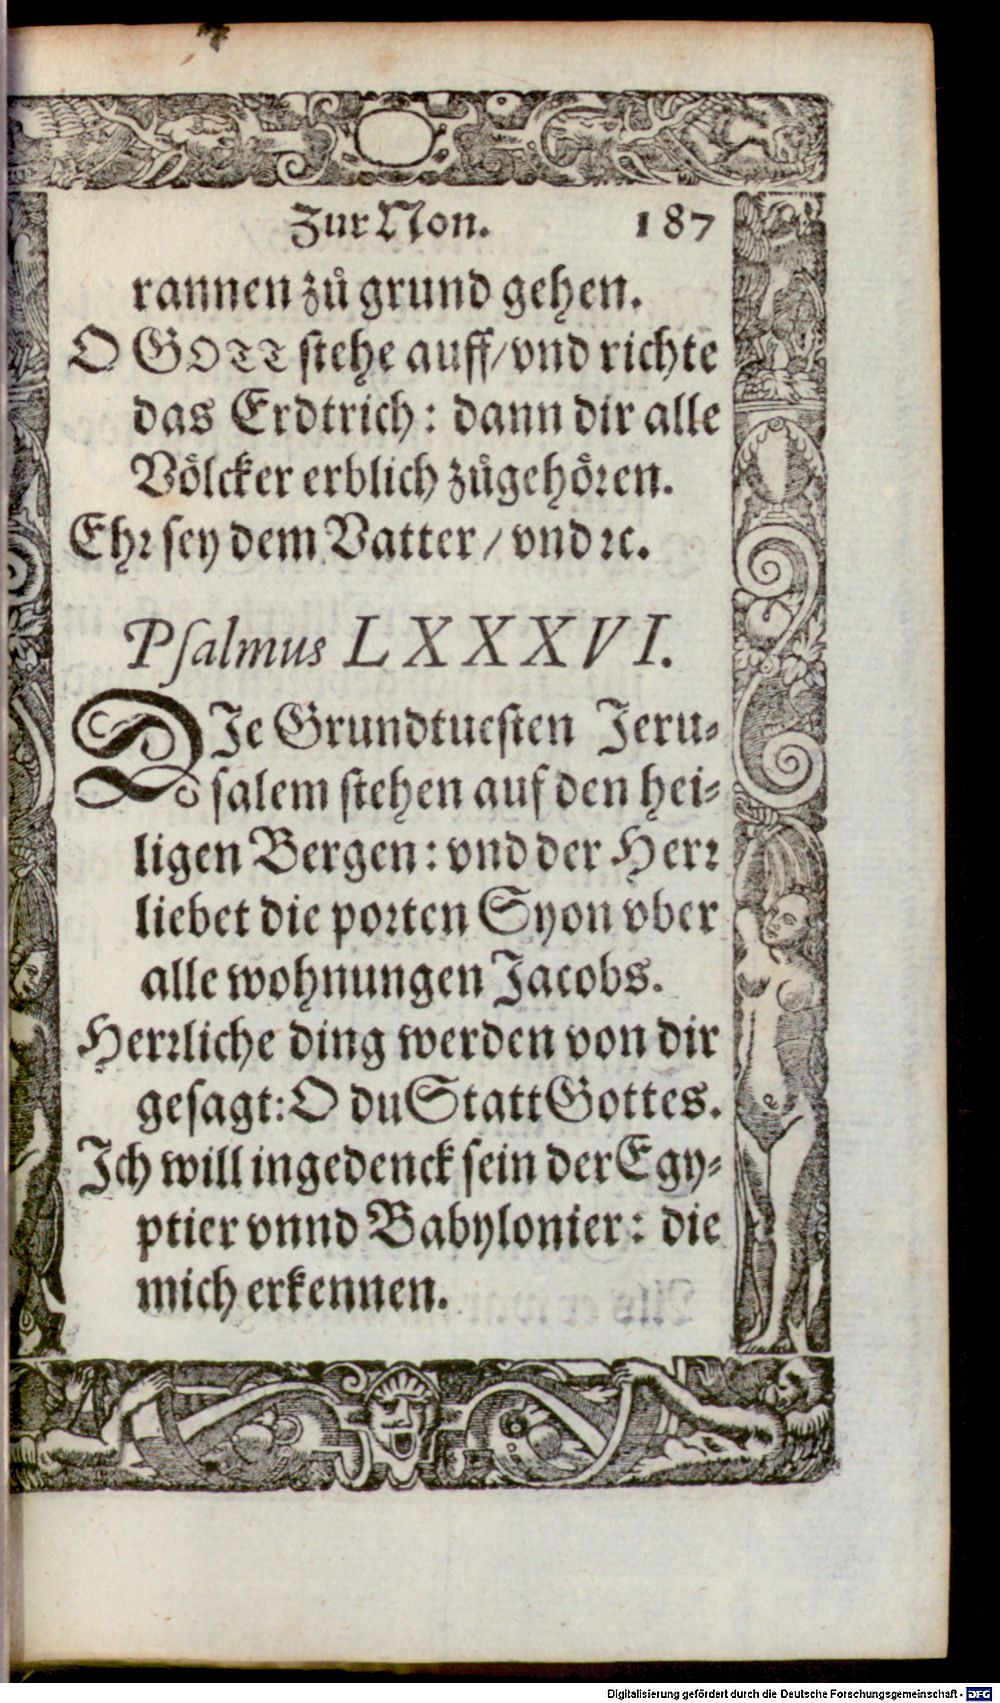 Zur Non. 187
rannen zů grund gehen.
O GOTT stehe auff/vnd richte
das Erdtrich: dann dir alle
Völcker erblich zůgehören.
Ehr sey dem Vatter / vnd ꝛc.
Psalmus LXXXVI.
DIe Grundtuesten Jeru-
salem stehen auf den hei-
ligen Bergen: vnd der Herr
liebet die porten Syon vber
alle wohnungen Jacobs.
Herrliche ding werden von dir
gesagt: O du Statt Gottes.
Ich will ingedenck sein der Egy-
ptier vnnd Babylonier: die
mich erkennen.
Digitalisierung gefördert durch die Deutsche Forschungsgemeinschaft - DFG